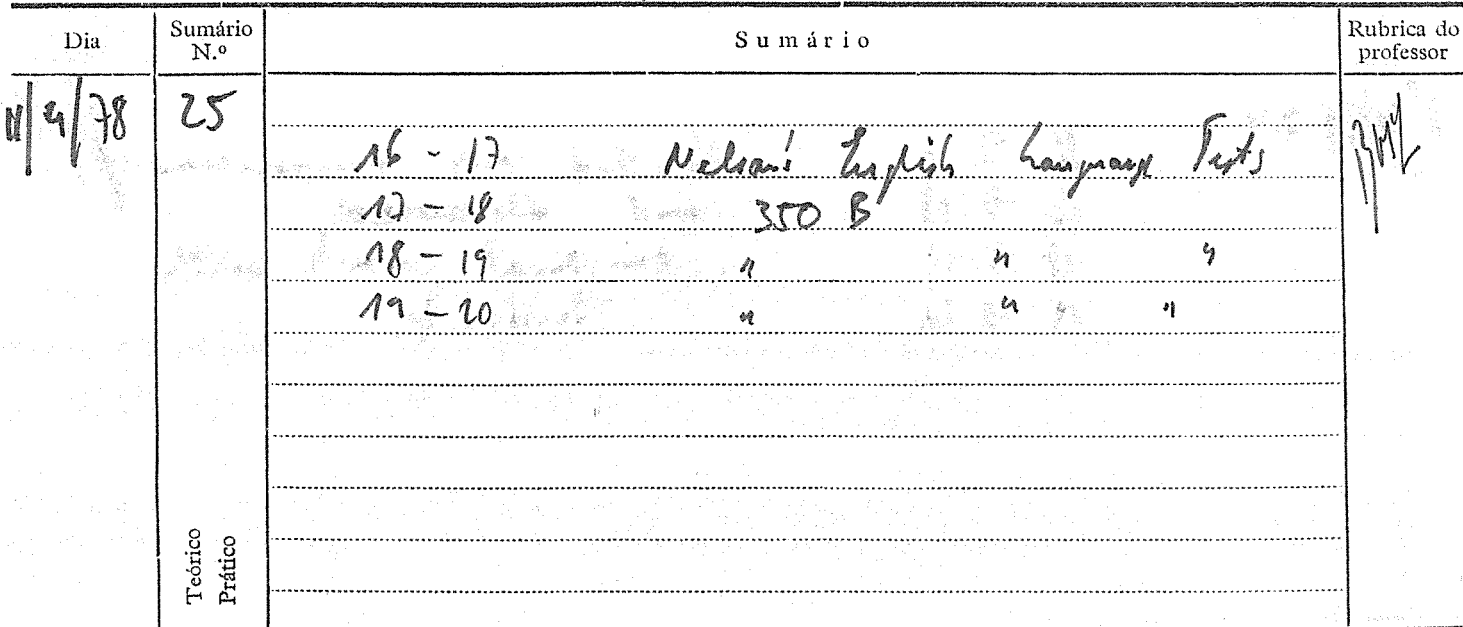 Dia Sumário N.º Sumário Rubrica do professor
/78 25
16 - 17 Nelson's English Language Tests
17 - 18 350 B
18 - 19 " " "
19 - 20 " " "
Teórico
Prático